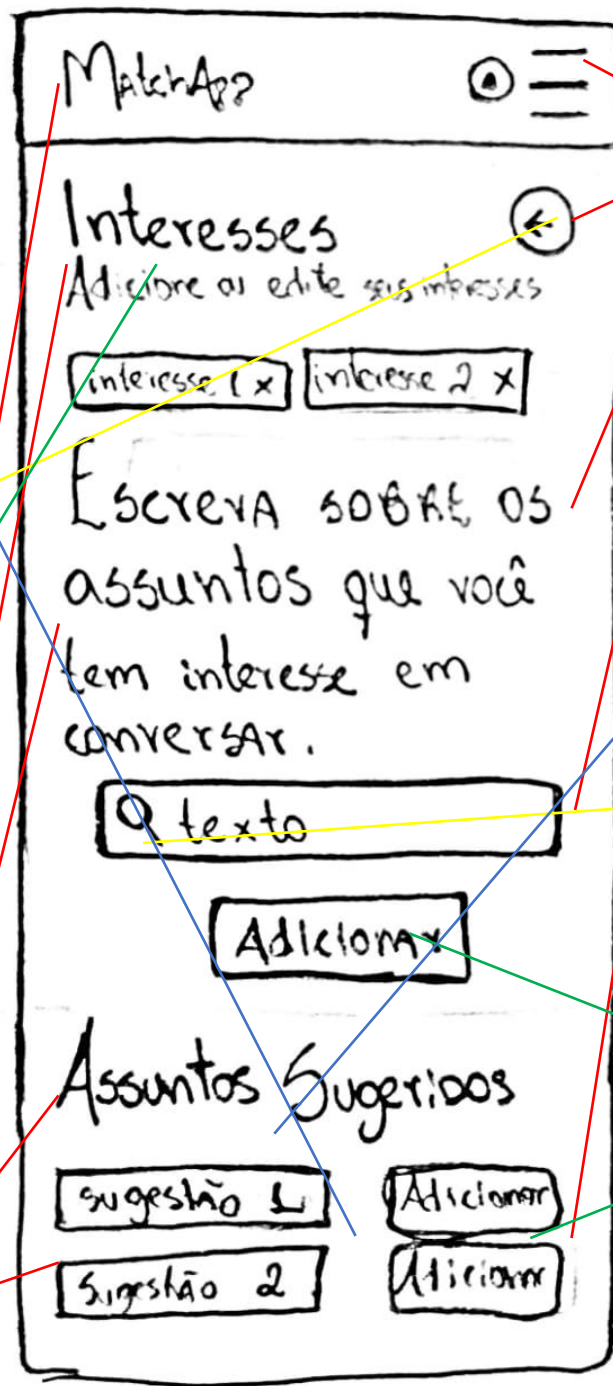 MatchApp
Interesses
Adicione ou edite seus interesses
interesse 1 x interesse 2 x
Escreva sobre os
assuntos que você
tem interesse em
conversar.
texto
Adicionar
Assuntos Sugeridos
sugestão 1 Adicionar
Sugestão 2 Adicionar